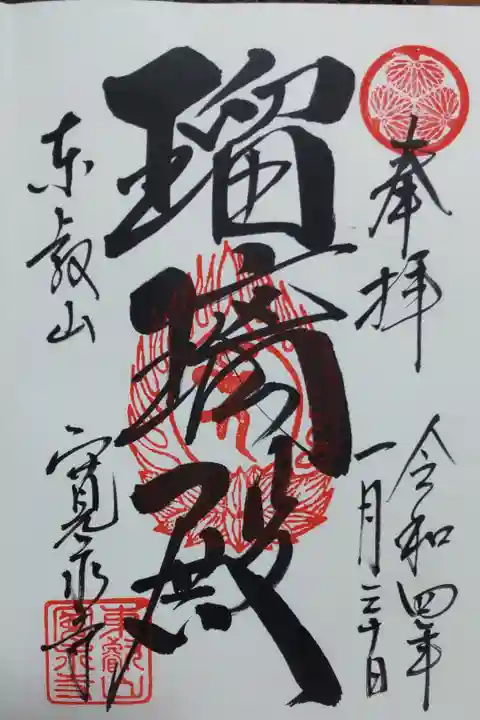 奉拝
令和四年
一月三十日
瑠璃殿
東叡山
寛永寺
東叡山
寛永寺